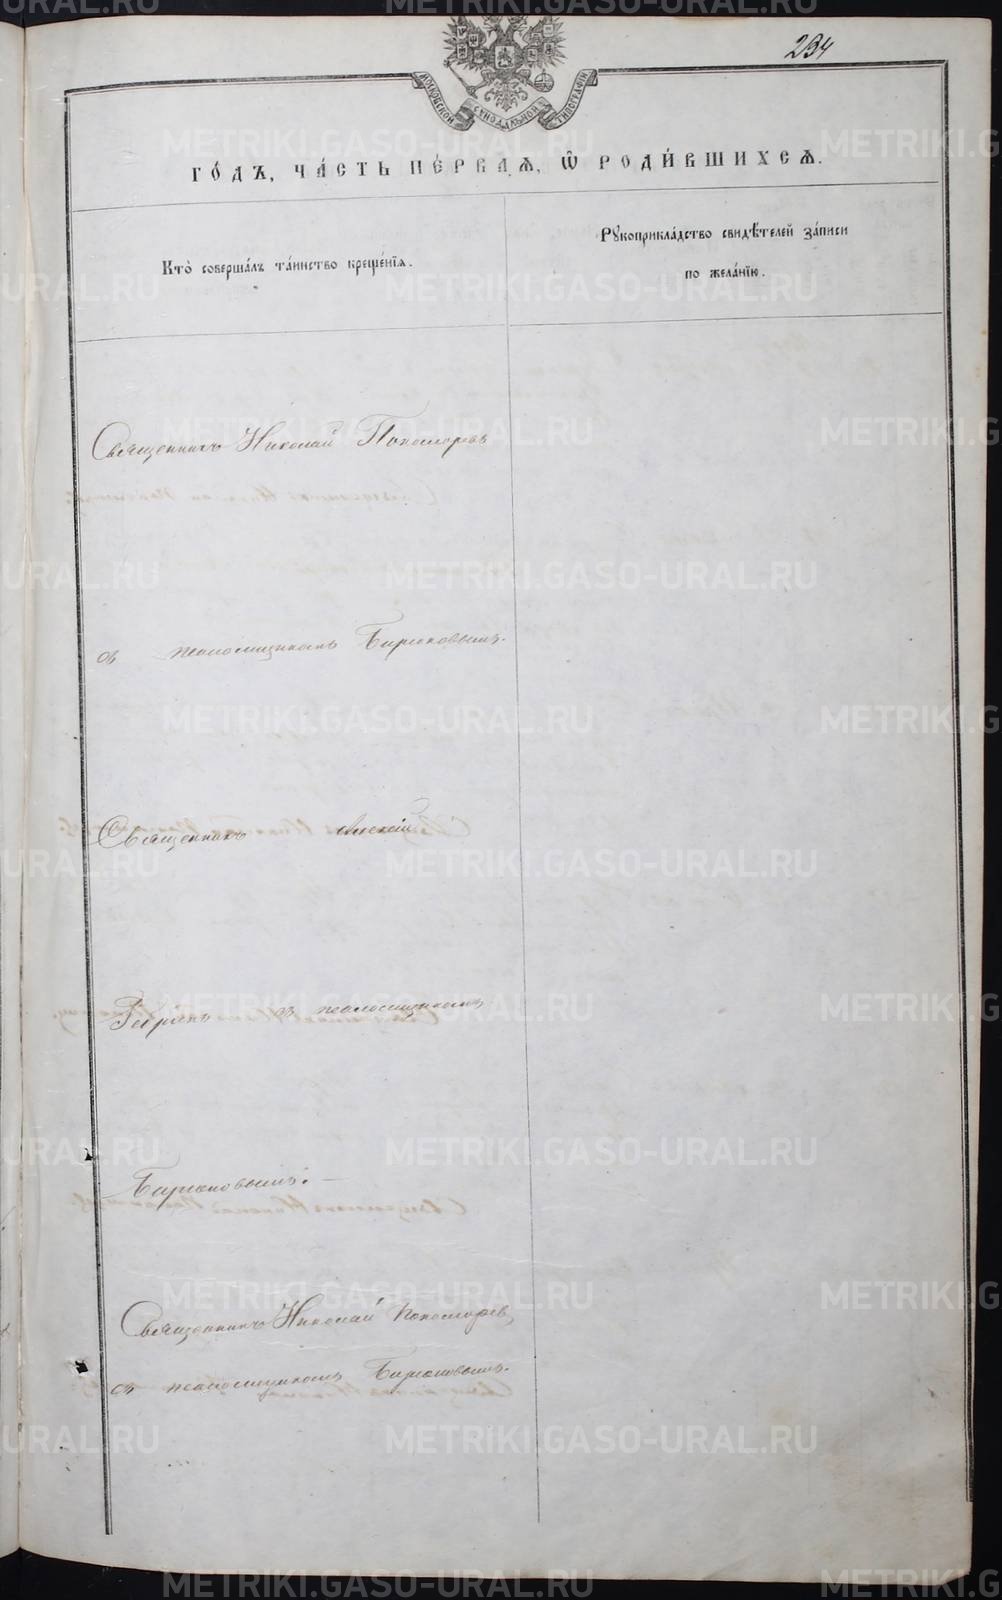 234
МОСКОВСКОЙ СѴНОДАЛЬНОЙ ТИПОГРАФІИ
ГО́ДЪ, ЧА́СТЬ ПЕ́РВАѦ, Ѡ҆ РОДИ́ВШИХСѦ.
Кто̀ соверша́лъ та́инство креще́нїѧ.
Рꙋкоприкла́дство свидѣ́телей за́писи
по жела́нїю.
Священникъ Николай Пономарев
съ псаломщикомъ Бирюковымъ.
Священникъ Алексій
съ псаломщикомъ
Бирюковымъ.
Священникъ Николай Пономарев,
съ псаломщикомъ Бирюковымъ.
METRIKI.GASO-URAL.RU